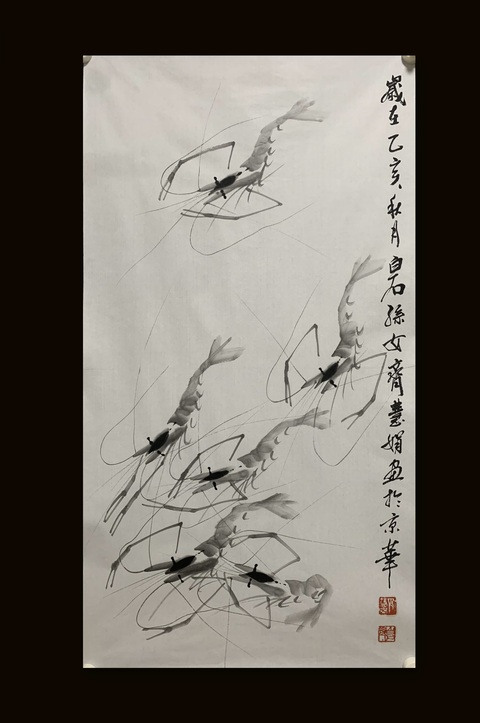 歲在乙亥秋月白石孫女齊慧娟畫於京華